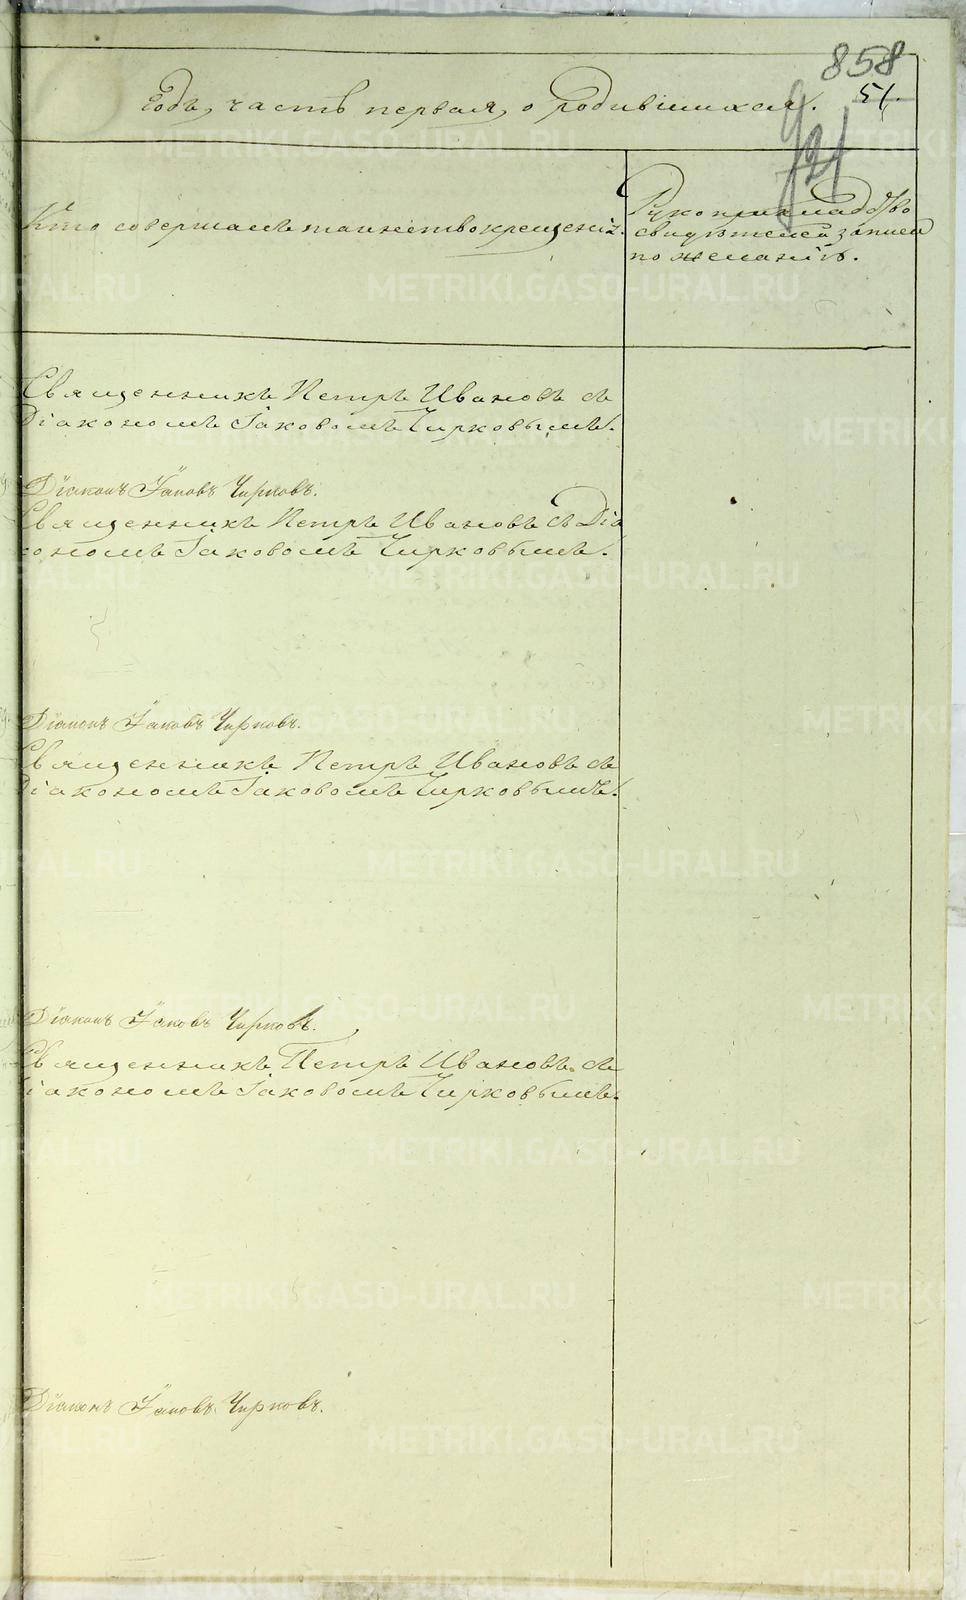 858
51.
921
Годъ, часть первая, о родившихся.
Кто совершалъ таинство крещенія.
Рукоприкладство
свидѣтелей записи
по желанію.
Священникъ Петръ Ивановъ съ
Діакономъ Іаковомъ Чирковымъ.
Діаконъ Іаковъ Чирковъ.
Священникъ Петръ Ивановъ съ Діа
кономъ Іаковомъ Чирковымъ.
Діаконъ Іаковъ Чирковъ.
Священникъ Петръ Ивановъ съ
Діакономъ Іаковомъ Чирковымъ.
Діаконъ Іаковъ Чирковъ.
Священникъ Петръ Ивановъ съ
Діакономъ Іаковомъ Чирковымъ.
Діаконъ Іаковъ Чирковъ.
METRIKI.GASO-URAL.RU